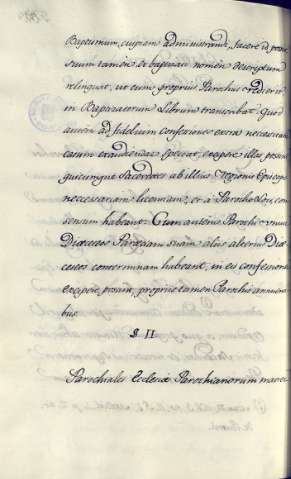 Baptismum, cujusm administrandi, facere id potest
suum tamen et baptizati nomen descriptum
relinquat, ut eum proprius Parochus rediens
in Baptizatorum Librum transcribat. Quod
autem ad fidelium confesiones extra necesitatis
casum audiendas spectat, excipere illas possunt
quicumque Sacerdotes ab illius Regionis Episcopo
neccessariam licentiam, et à Parocho Loci con-
sensum habeant. Cum autem Parochi unius
Diœcesis Parœciam suam aliis alterius Diœ
cesis conterminam habeant, in eis confesiones
excipere possint, proprio tamen Parocho annuen-
bus.
§ II
Parochiales Ecclesiæ Parochianorum